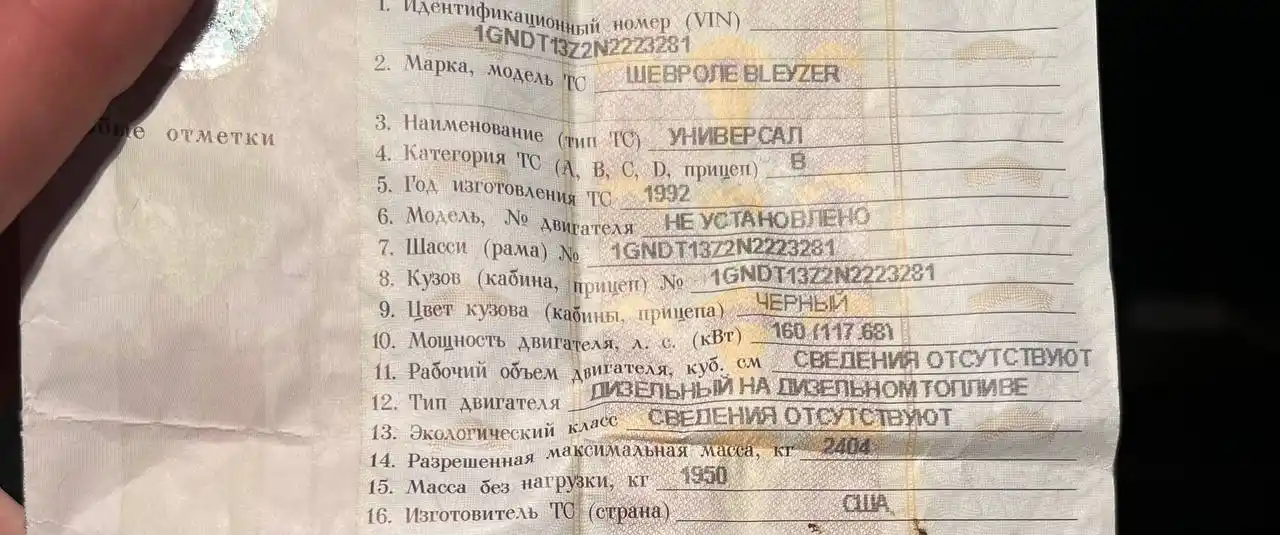 1. Идентификационный номер (VIN)
1GNDT13Z2N2223281
2. Марка, модель ТС ШЕВРОЛЕ BLEYZER
отметки
3. Наименование (тип ТС) УНИВЕРСАЛ
4. Категория ТС (A, B, C, D, прицеп) B
5. Год изготовления ТС 1992
6. Модель, № двигателя НЕ УСТАНОВЛЕНО
7. Шасси (рама) № 1GNDT13Z2N2223281
8. Кузов (кабина, прицеп) № 1GNDT13Z2N2223281
9. Цвет кузова (кабины, прицепа) ЧЕРНЫЙ
10. Мощность двигателя, л. с. (кВт) 160 (117.68)
11. Рабочий объем двигателя, куб. см СВЕДЕНИЯ ОТСУТСТВУЮТ
12. Тип двигателя ДИЗЕЛЬНЫЙ НА ДИЗЕЛЬНОМ ТОПЛИВЕ
13. Экологический класс СВЕДЕНИЯ ОТСУТСТВУЮТ
14. Разрешенная максимальная масса, кг 2404
15. Масса без нагрузки, кг 1950
16. Изготовитель ТС (страна) США